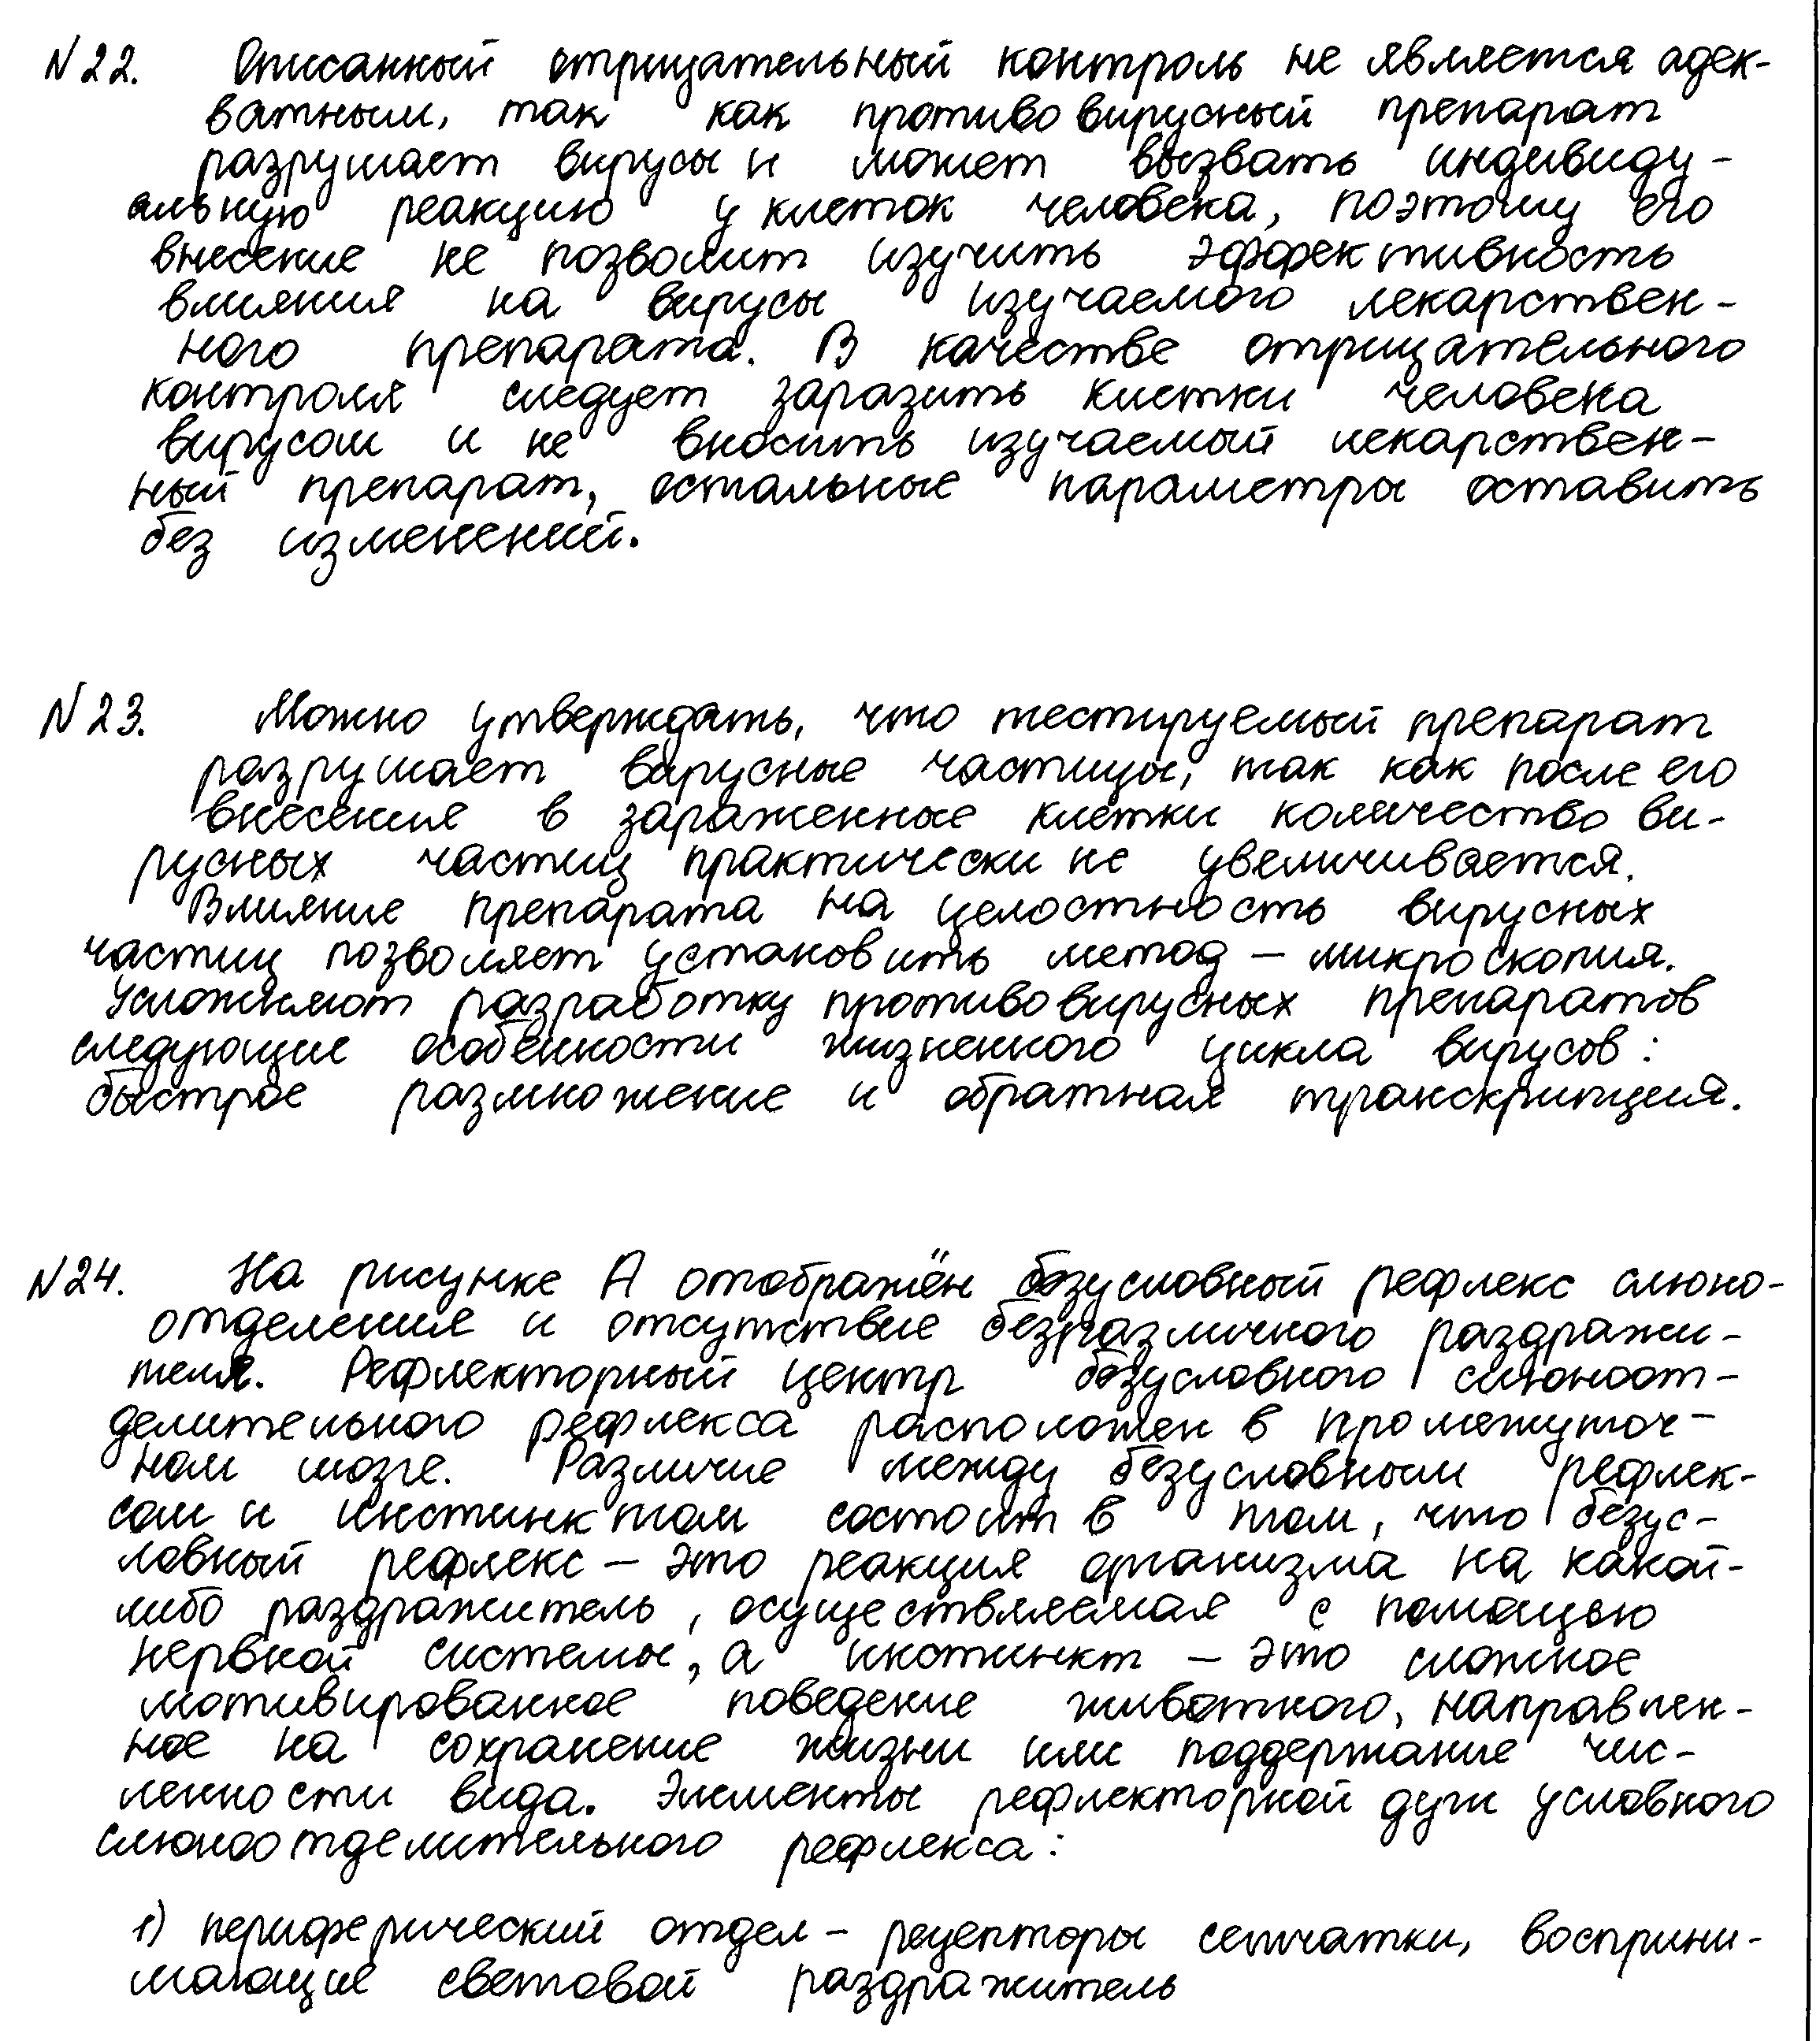 №22. Описанный отрицательный контроль не является адек-
ватным, так как противовирусный препарат
разрушает вирусы и может вызвать индивиду-
альную реакцию у клеток человека, поэтому его
внесение не позволит изучить эффективность
влияния на вирусы изучаемого лекарствен-
ного препарата. В качестве отрицательного
контроля следует заразить клетки человека
вирусом и не вносить изучаемый лекарствен-
ный препарат, остальные параметры оставить
без изменений.
№23. Можно утверждать, что тестируемый препарат
разрушает вирусные частицы, так как после его
внесения в зараженные клетки количество ви-
русных частиц практически не увеличивается.
Влияние препарата на целостность вирусных
частиц позволяет установить метод – микроскопия.
Усложняют разработку противовирусных препаратов
следующие особенности жизненного цикла вирусов:
быстрое размножение и обратная транскрипция.
№24. На рисунке А отображён безусловный рефлекс слюно-
отделения и отсутствие безразличного раздражи-
теля. Рефлекторный центр безусловного слюноот-
делительного рефлекса расположен в промежуточ-
ном мозге. Различие между безусловным рефлек-
сом и инстинктом состоит в том, что безус-
ловный рефлекс – это реакция организма на какой-
либо раздражитель, осуществляемая с помощью
нервной системы, а инстинкт – это сложное
мотивированное поведение животного, направлен-
ное на сохранение жизни или поддержание чис-
ленности вида. Элементы рефлекторной дуги условного
слюноотделительного рефлекса:
1) периферический отдел – рецепторы сетчатки, восприни-
мающие световой раздражитель